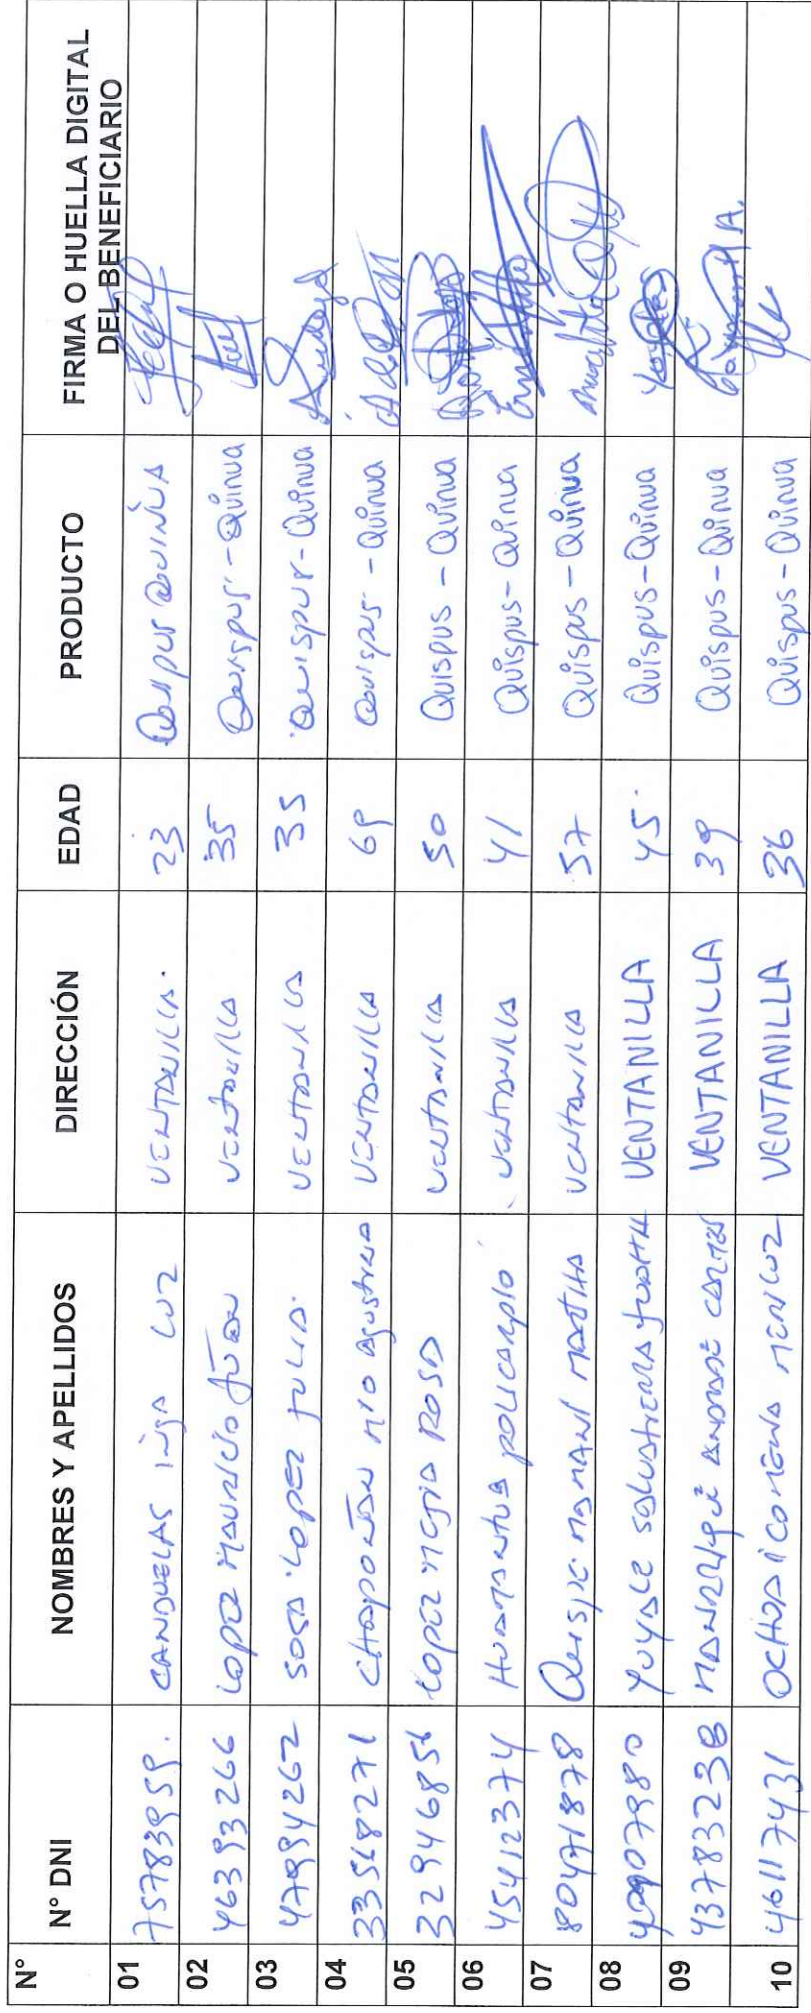 N° N° DNI NOMBRES Y APELLIDOS DIRECCIÓN EDAD PRODUCTO FIRMA O HUELLA DIGITAL
DEL BENEFICIARIO
01 75783959. CANDUELAS INGA LUZ VENTANILLA. 23 QUINUA
02 46393266 LOPEZ MAURICIO JUAN VENTANILLA 35 Quispus - Quinua
03 47994262 SOSA LOPEZ JULIA. VENTANILLA 35 Quispus - Quinua
04 33568271 CHAPOÑAN MIO AGUSTINA VENTANILLA 69 Quispus - Quinua
05 32946856 LOPEZ MEJIA ROSA VENTANILLA 50 Quispus - Quinua
06 45412374 POLICARPIO VENTANILLA 41 Quispus - Quinua
07 80471878 Quispe MAMANI MARTHA VENTANILLA 57 Quispus - Quinua
08 YUYALE VENTANILLA 45. Quispus - Quinua
09 43783238 MANRRIQUE VENTANILLA 39 Quispus - Quinua
10 46117431 OCHOA VENTANILLA 36 Quispus - Quinua